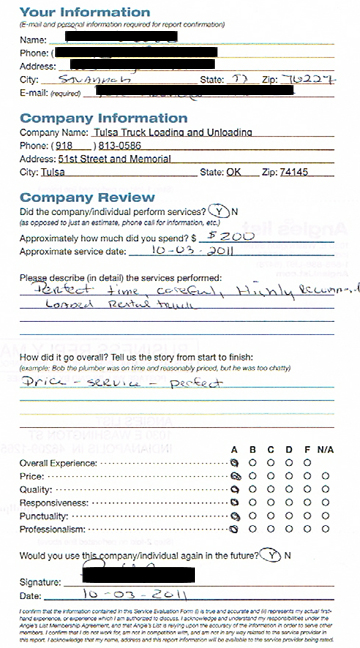 Your Information
(E-mail and personal information required for report confirmation)
Name:
Phone: (
Address:
City: Savannah State: TX Zip: 76227
E-mail: (required)
Company Information
Company Name: Tulsa Truck Loading and Unloading
Phone: ( 918 ) 813-0586
Address: 51st Street and Memorial
City: Tulsa State: OK Zip: 74145
Company Review
Did the company/individual perform services? Y N
(as opposed to just an estimate, phone call for information, etc.)
Approximately how much did you spend? $ $200
Approximate service date: 10-03-2011
Please describe (in detail) the services performed:
Perfect time, careful, Highly Recommend
Loaded Rental truck
How did it go overall? Tell us the story from start to finish:
(example: Bob the plumber was on time and reasonably priced, but he was too chatty)
Price - service - perfect
A B C D F N/A
Overall Experience:
Price:
Quality:
Responsiveness:
Punctuality:
Professionalism:
Would you use this company/individual again in the future? Y N
Signature:
Date: 10-03-2011
I confirm that the information contained in this Service Evaluation Form (i) is true and accurate and (ii) represents my actual first-
hand experience, or experience which I am authorized to discuss. I acknowledge and understand my responsibilities under the
Angie's List Membership Agreement, and that Angie's List is relying upon the accuracy of the information in order to serve other
members. I confirm that I do not work for, am not in competition with, and am not in any way related to the service provider in
this report. I acknowledge that my name, address and this report information will be available to the service provider being rated.